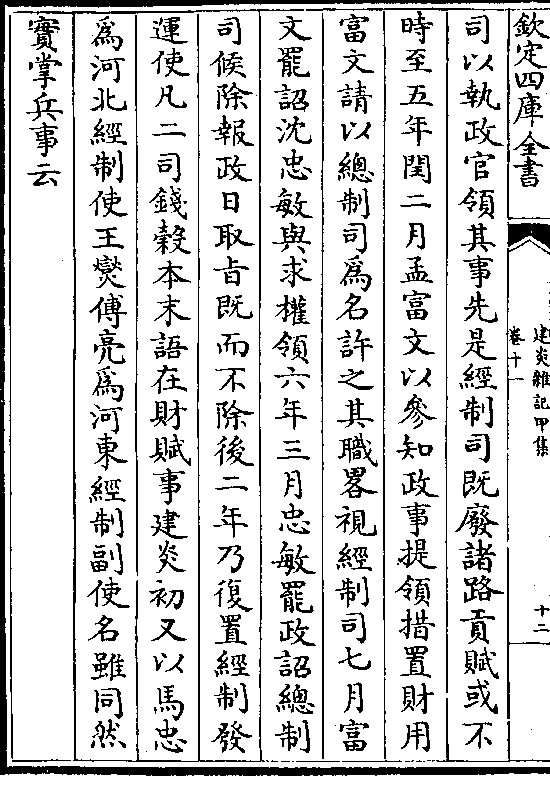 欽定四庫全書
建炎雜記甲集
卷十一
十二
司以執政官領其事先是經制司既廢諸路貢賦或不
時至五年閏二月孟富文以參知政事提領措置財用
富文請以總制司爲名許之其職畧視經制司七月富
文罷詔沈忠敏與求權領六年三月忠敏罷政詔總制
司候除報政日取旨既而不除後二年乃復置經制發
運使凡二司錢榖本末語在財賦事建炎初又以馬忠
爲河北經制使王爕傅亮爲河東經制副使名雖同然
實掌兵事云